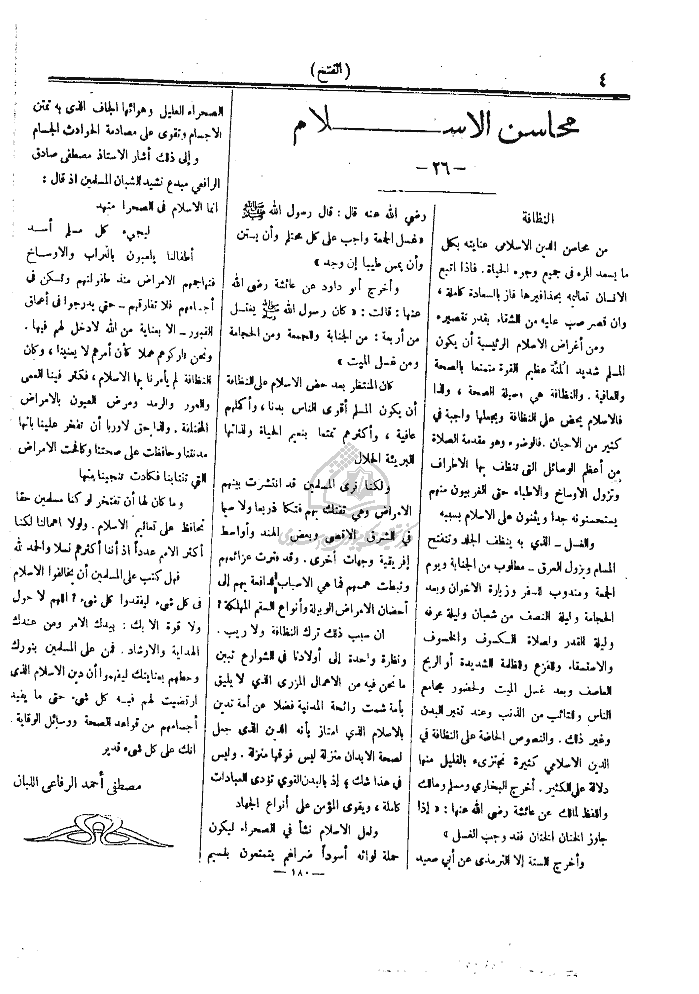 ٤
(الفتح)
محاسن الاسـلام
— ٢٦ —
النظافة
من محاسن الدين الاسلامي عنايته بكل
ما يسعد المرء في جميع وجوه الحياة . فاذا اتبع
الانسان تعاليمه بحذافيرها فاز بالسعادة كاملة ،
وان قصر صب عليه من الشقاء بقدر تقصيره
ومن أغراض الاسلام الرئيسية أن يكون
المسلم شديد المُنَّة عظيم القوة متمتعا بالصحة
والعافية . والنظافة هي وسيلة الصحة ، ولذا
فالاسلام يحض على النظافة ويجعلها واجبة في
كثير من الاحيان . فالوضوء وهو مقدمة الصلاة
من أعظم الوسائل التي تنظف بها الاطراف
وتزول الاوساخ والاطباء حتى الغربيون منهم
يستحسنونه جداً ويثنون على الاسلام بسببه
والغسل ـ الذي به ينظف الجلد وتتفتح
المسام ويزول العرق ـ مطلوب من الجنابة ويوم
الجمعة ومندوب للسفر وزيارة الاخوان وبعد
الحجامة وليلة النصف من شعبان وليلة عرفه
وليلة القدر ولصلاة الكسوف والخسوف
والاستسقاء وللفزع والظلمة الشديدة أو الريح
العاصف وبعد غسل الميت ولحضور مجامع
الناس وللتائب من الذنب وعند تغير البدن
وغير ذلك . والنصوص الحاضة على النظافة في
الدين الاسلامي كثيرة نجتزىء بالقليل منها
دلالة على الكثير . أخرج البخاري ومسلم ومالك
واللفظ لمالك عن عائشة رضي الله عنها : « إذا
جاوز الختان الختان فقد وجب الغسل »
وأخرج الستة إلا الترمذى عن أبي سعيد
رضي الله عنه قال : قال رسول الله ﷺ
« غسل الجمعة واجب على كل محتلم وأن يستن
وأن يمس طيبا إن وجد »
وأخرج أبو داود عن عائشة رضي الله
عنها : قالت : « كان رسول الله ﷺ يغتسل
من أربعة : من الجنابة والجمعة ومن الحجامة
ومن غسل الميت »
كان المنتظر بعد حض الاسلام على النظافة
أن يكون المسلم أقوى الناس بدنا ، وأكملهم
عافية ، وأكثرهم تمتعا بنعيم الحياة ولذاتها
البريئة الحلال
ولكنا نرى المسلمين قد انتشرت بينهم
الامراض وهي تفتك بهم فتكا ذريعا ولا سيما
في الشرق الاقصى وبعض الهند وأواسط
إفريقية وجهات أخرى . وقد فترت عزائمهم
وثبطت هممهم فما هي الاسباب الدافعة بهم إلى
أحضان الامراض الوبيلة وأنواع السقم المهلكة ؟
ان سبب ذلك ترك النظافة ولا ريب .
ونظرة واحدة إلى أولادنا في الشوارع تبين
ما نحن فيه من الاهمال المزرى الذي لا يليق
بأمة شمت رائحة المدنية فضلا عن أمة تدين
بالاسلام الذي امتاز بأنه الدين الذى جعل
لصحة الابدان منزلة ليس فوقها منزلة . وليس
في هذا شك ؛ إذ بالبدن القوي تؤدى العبادات
كاملة ، ويقوى المؤمن على أنواع الجهاد
ولعل الاسلام نشأ في الصحراء ليكون
حملة لوائه أسوداً ضراغم يتمتعون بنسيم
الصحراء العليل وهوائها الجاف الذى به تمتن
الاجسام وتقوى على مصادمة الحوادث الجسام
وإلى ذلك أشار الاستاذ مصطفى صادق
الرافعي مبدع نشيد الشبان المسلمين اذ قال :
انما الاسلام في الصحرا مهد
ليجيء كل مسلم أسد
أطفالنا يلعبون بالتراب والاوساخ
فتهاجمهم الامراض منذ طفولتهم وتسكن في
أجسامهم فلا تفارقهم ـ حتى يدرجوا في أعماق
القبور ـ الا بعناية من الله لادخل لهم فيها .
ونحن تاركوهم هملا كأن أمرهم لا يعنينا ، وكأن
النظافة لم يأمرنا بها الاسلام ، فكثر فينا العمى
والعور والرمد ومرض العيون بالامراض
المختلفة . ولذا حق لاوربا أن تفخر علينا بأنها
مدنتنا وحافظت على صحتنا وكافحت الامراض
التي تنتابنا فكادت تنجينا منها
وما كان لها أن تفتخر لو كنا مسلمين حقا
نحافظ على تعاليم الاسلام . ولولا اهمالنا لكنا
أكثر الامم عدداً اذ أننا أكثرهم نسلا والحمد لله
فهل كتب على المسلمين أن يخالفوا الاسلام
في كل شيء ليفقدوا كل شيء ؟ اللهم لا حول
ولا قوة الا بك : بيدك الامر ومن عندك
الهداية والارشاد . فمن على المسلمين بنورك
وحطهم بعنايتك ليفهموا أن دين الاسلام الذى
ارتضيت لهم فيه كل شيء حتى ما يفيد
أجسامهم من قواعد الصحة ووسائل الوقاية .
انك على كل شيء قدير
مصطفى أحمد الرفاعي اللبان
— ١٨٠ —